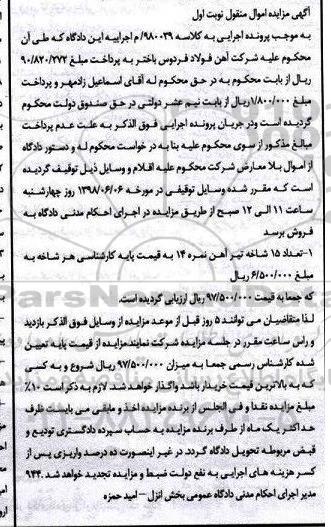 آگهی مزایده اموال منقول نوبت اول
به موجب پرونده اجرایی به کلاسه ۹۸۰۰۳۹/م اجراییه این دادگاه که طی آن
محکوم علیه شرکت آهن فولاد فردوس باختر به پرداخت مبلغ ۹۰/۸۲۰/۲۷۲
ریال از بابت محکوم به در حق محکوم له آقای اسماعیل زادمهر و پرداخت
مبلغ ۱/۸۰۰/۰۰۰ریال از بابت نیم عشر دولتی در حق صندوق دولت محکوم
گردیده است ودر جریان پرونده اجرایی فوق الذکر به علت عدم پرداخت
مبالغ مذکور از سوی محکوم علیه بنا به در خواست محکوم له و دستور دادگاه
از اموال بلا معارض شرکت محکوم علیه اقلام و وسایل ذیل توقیف گردیده
است که مقرر شده وسایل توقیفی در مورخه ۱۳۹۸/۰۶/۰۶ روز چهارشنبه
ساعت ۱۱ الی ۱۲ صبح از طریق مزایده در اجرای احکام مدنی دادگاه به
فروش برسد
۱-تعداد ۱۵ شاخه تیر آهن نمره ۱۴ به قیمت پایه کارشناسی هر شاخه به
مبلغ ۶/۵۰۰/۰۰۰ ریال
که جمعا به قیمت ۹۷/۵۰۰/۰۰۰ ریال ارزیابی گردیده است.
لذا متقاضیان می توانند ۵ روز قبل از موعد مزایده از وسایل فوق الذکر بازدید
و راس ساعت مقرر در جلسه مزایده شرکت نمایند مزایده از قیمت پایه تعیین
شده کارشناس رسمی جمعا به میزان ۹۷/۵۰۰/۰۰۰ ریال شروع و به کسی
که به بالاترین قیمت خریدار باشد واگذار خواهد شد. لازم به ذکر است ۱۰٪
مبلغ مزایده نقدا و فی المجلس از برنده مزایده اخذ و مابقی می بایست ظرف
حداکثر یک ماه از طرف برنده مزایده به حساب سپرده دادگستری تودیع و
قبض مربوطه تحویل دادگاه گردد. در غیر اینصورت ده درصد واریزی پس از
کسر هزینه های اجرایی به نفع دولت ضبط و مزایده تجدید خواهد شد. ۹۴۴
مدیر اجرای احکام مدنی دادگاه عمومی بخش انزل – امید حمزه